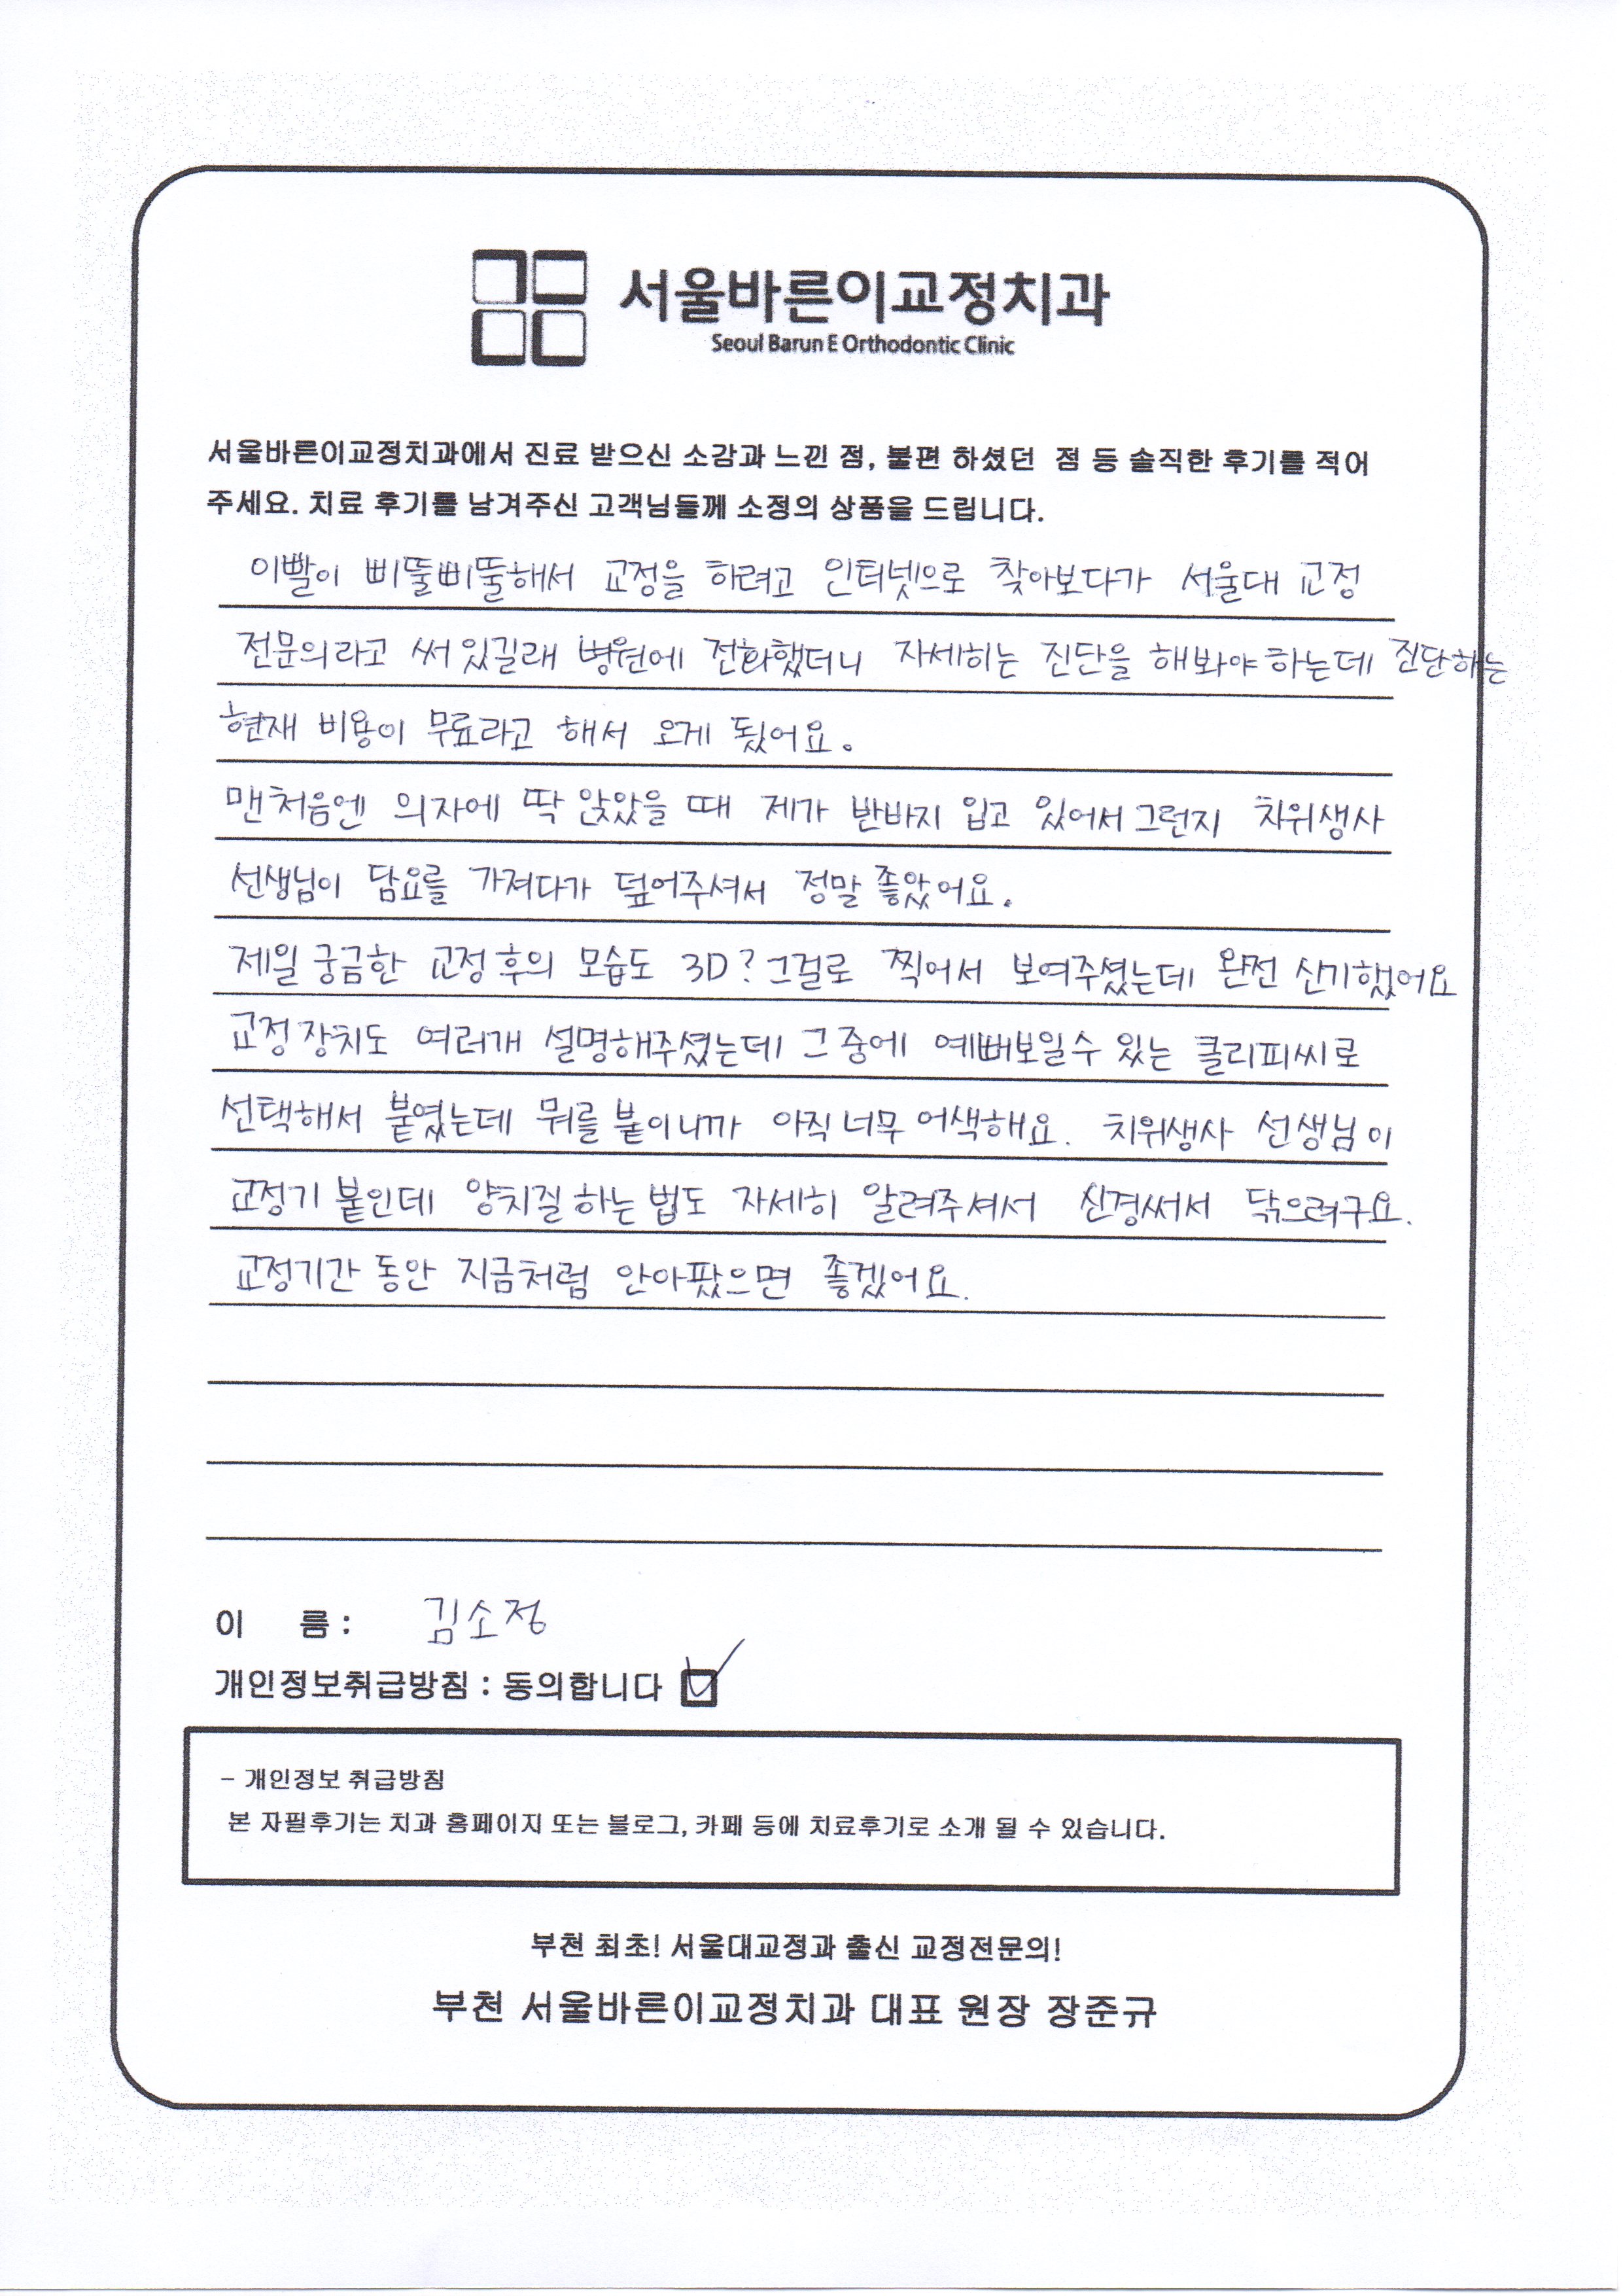 서울바른이교정치과
Seoul Barun E Orthodontic Clinic
서울바른이교정치과에서 진료 받으신 소감과 느낀 점, 불편 하셨던 점 등 솔직한 후기를 적어
주세요. 치료 후기를 남겨주신 고객님들께 소정의 상품을 드립니다.
이빨이 삐뚤삐뚤해서 교정을 하려고 인터넷으로 찾아보다가 서울대 교정
전문의라고 써있길래 병원에 전화했더니 자세히는 진단을 해봐야하는데 진단하는
현재 비용이 무료라고 해서 오게 됐어요.
맨처음엔 의자에 딱 앉았을 때 제가 반바지 입고 있어서 그런지 치위생사
선생님이 담요를 가져다가 덮어주셔서 정말 좋았어요.
제일 궁금한 교정후의 모습도 3D? 그걸로 찍어서 보여주셨는데 완전 신기했어요
교정장치도 여러개 설명해주셨는데 그중에 예뻐보일수 있는 클리피씨로
선택해서 붙였는데 뭐를 붙이니까 아직 너무 어색해요. 치위생사 선생님이
교정기 붙인데 양치질하는법도 자세히 알려주셔서 신경써서 닦으려구요.
교정기간 동안 지금처럼 안아팠으면 좋겠어요.
이 름 : 김소정
개인정보취급방침 : 동의합니다
- 개인정보 취급방침
본 자필후기는 치과 홈페이지 또는 블로그, 카페 등에 치료후기로 소개 될 수 있습니다.
부천 최초! 서울대교정과 출신 교정전문의!
부천 서울바른이교정치과 대표 원장 장준규